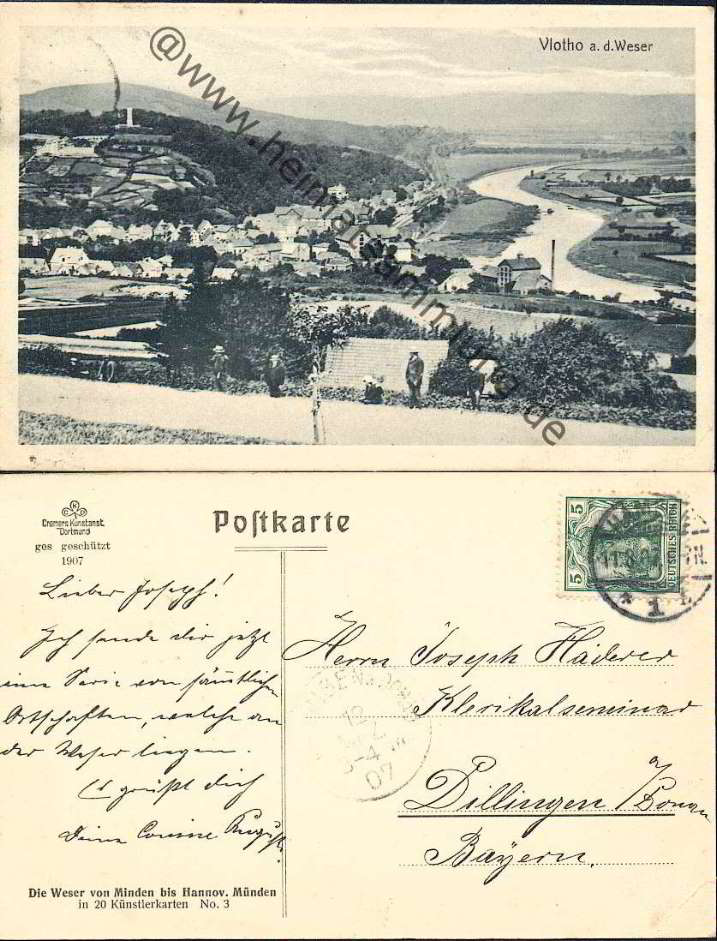 Vlotho a. d. Weser
@www.heimatsammlung.de
Cremers Kunstanst.
Dortmund
ges geschützt
1907
Postkarte
5
5
DEUTSCHES REICH
Lieber Joseph!
Ich sende dir jetzt
eine Serie von sämtlichen
Ortschaften, welche an
der Weser liegen.
Es grüßt dich
Deine Cousine
Herrn Joseph Häderer
Klerikalseminar
Dillingen a/Donau
Bayern.
12
5-4
07
1
Die Weser von Minden bis Hannov. Münden
in 20 Künstlerkarten No. 3